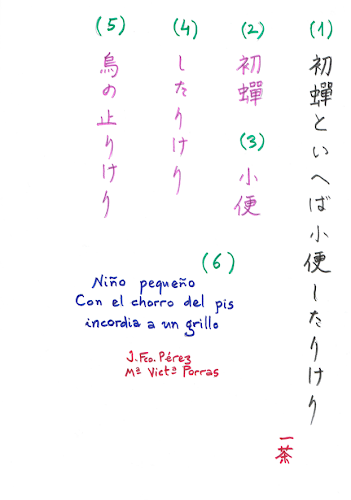 (1)
初蟬といへば小便したりけり
一茶
(2)
初蟬
(3)
小便
(4)
したりけり
(5)
烏の止りけり
(6)
Niño pequeño
Con el chorro del pis
incordia a un grillo
J. Fco. Pérez
Mª Victª Porras